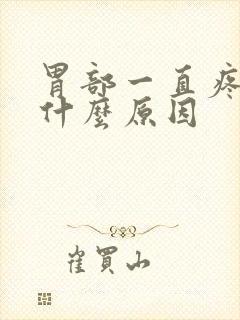 胃部一直疼
什麼原因
崔買山